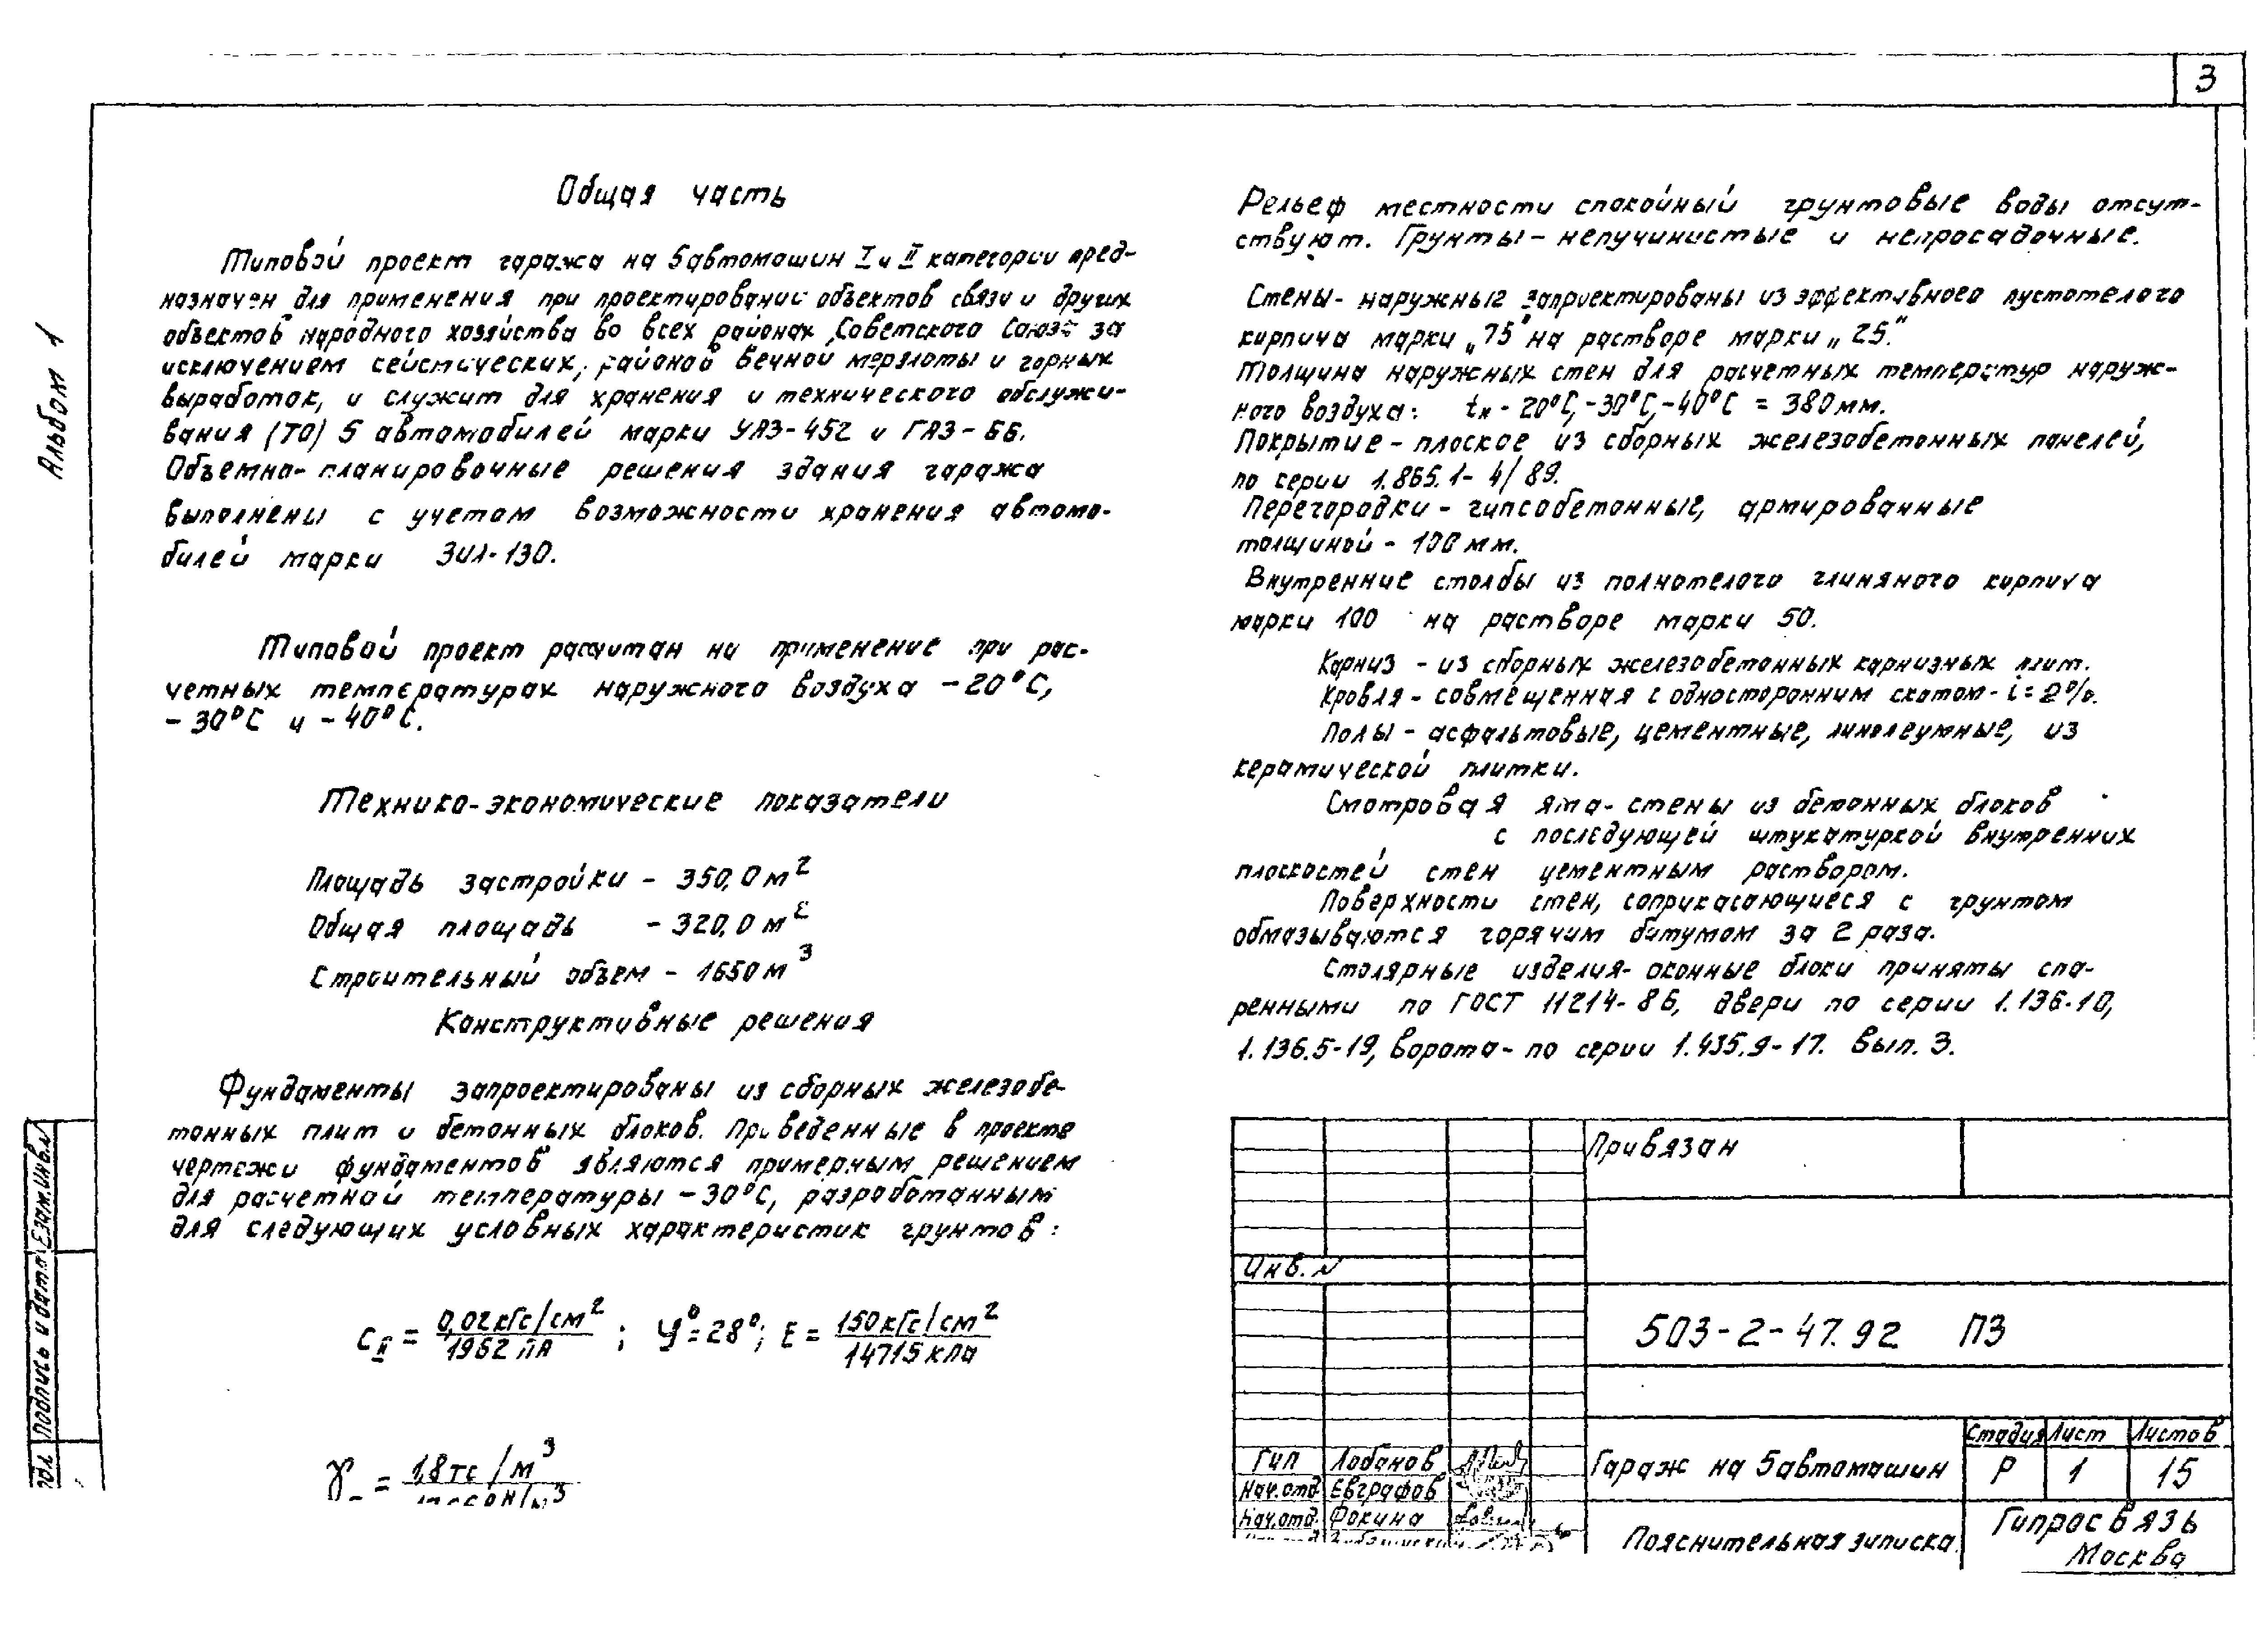 3
Альбом 1
Общая часть
Типовой проект гаража на 5 автомашин I и II категории пред-
назначен для применения при проектировании объектов связи и других
объектов народного хозяйства во всех районах Советского Союза за
исключением сейсмических, районов вечной мерзлоты и горных
выработок, и служит для хранения и технического обслужи-
вания (ТО) 5 автомобилей марки УАЗ-452 и ГАЗ-66.
Объемно-планировочные решения здания гаража
выполнены с учетом возможности хранения автомо-
билей марки ЗИЛ-130.
Типовой проект рассчитан на применение при рас-
четных температурах наружного воздуха -20°С,
-30°С и -40°С.
Технико-экономические показатели
Площадь застройки - 350,0 м²
Общая площадь - 320,0 м²
Строительный объем - 1650 м³
Конструктивные решения
Фундаменты запроектированы из сборных железобе-
тонных плит и бетонных блоков. Приведенные в проекте
чертежи фундаментов являются примерным решением
для расчетной температуры -30°С, разработанным
для следующих условных характеристик грунтов:
C_II = 0,02 кГс/см² / 1962 ПА ; φ° = 28°; E = 150 кГс/см² / 14715 кПа
γ = 1,8 тс/м³
Рельеф местности спокойный грунтовые воды отсут-
ствуют. Грунты - непучинистые и непросадочные.
Стены - наружные запроектированы из эффективного пустотелого
кирпича марки „75" на растворе марки „25."
Толщина наружных стен для расчетных температур наруж-
ного воздуха: tн - 20°С, -30°С, -40°С = 380 мм.
Покрытие - плоское из сборных железобетонных панелей,
по серии 1.865.1-4/89.
Перегородки - гипсобетонные, армированные
толщиной - 100 мм.
Внутренние столбы из полнотелого глиняного кирпича
марки 100 на растворе марки 50.
Карниз - из сборных железобетонных карнизных плит.
Кровля - совмещенная с односторонним скатом - i = 2%.
Полы - асфальтовые, цементные, линолеумные, из
керамической плитки.
Смотровая яма - стены из бетонных блоков
с последующей штукатуркой внутренних
плоскостей стен цементным раствором.
Поверхности стен, соприкасающиеся с грунтом
обмазываются горячим битумом за 2 раза.
Столярные изделия - оконные блоки приняты спа-
ренными по ГОСТ 11214-86, двери по серии 1.136-10,
1.136.5-19, ворота - по серии 1.435.9-17. Вып. 3.
Привязан
Инв. N
503-2-47.92 ПЗ
Гип Лобанов
Нач.отд. Евграфов
Нач.отд. Фокина
Гараж на 5 автомашин
Стадия Лист Листов
Р 1 15
Пояснительная записка
Гипросвязь
Москва
Взам.инв.N
Подпись и дата